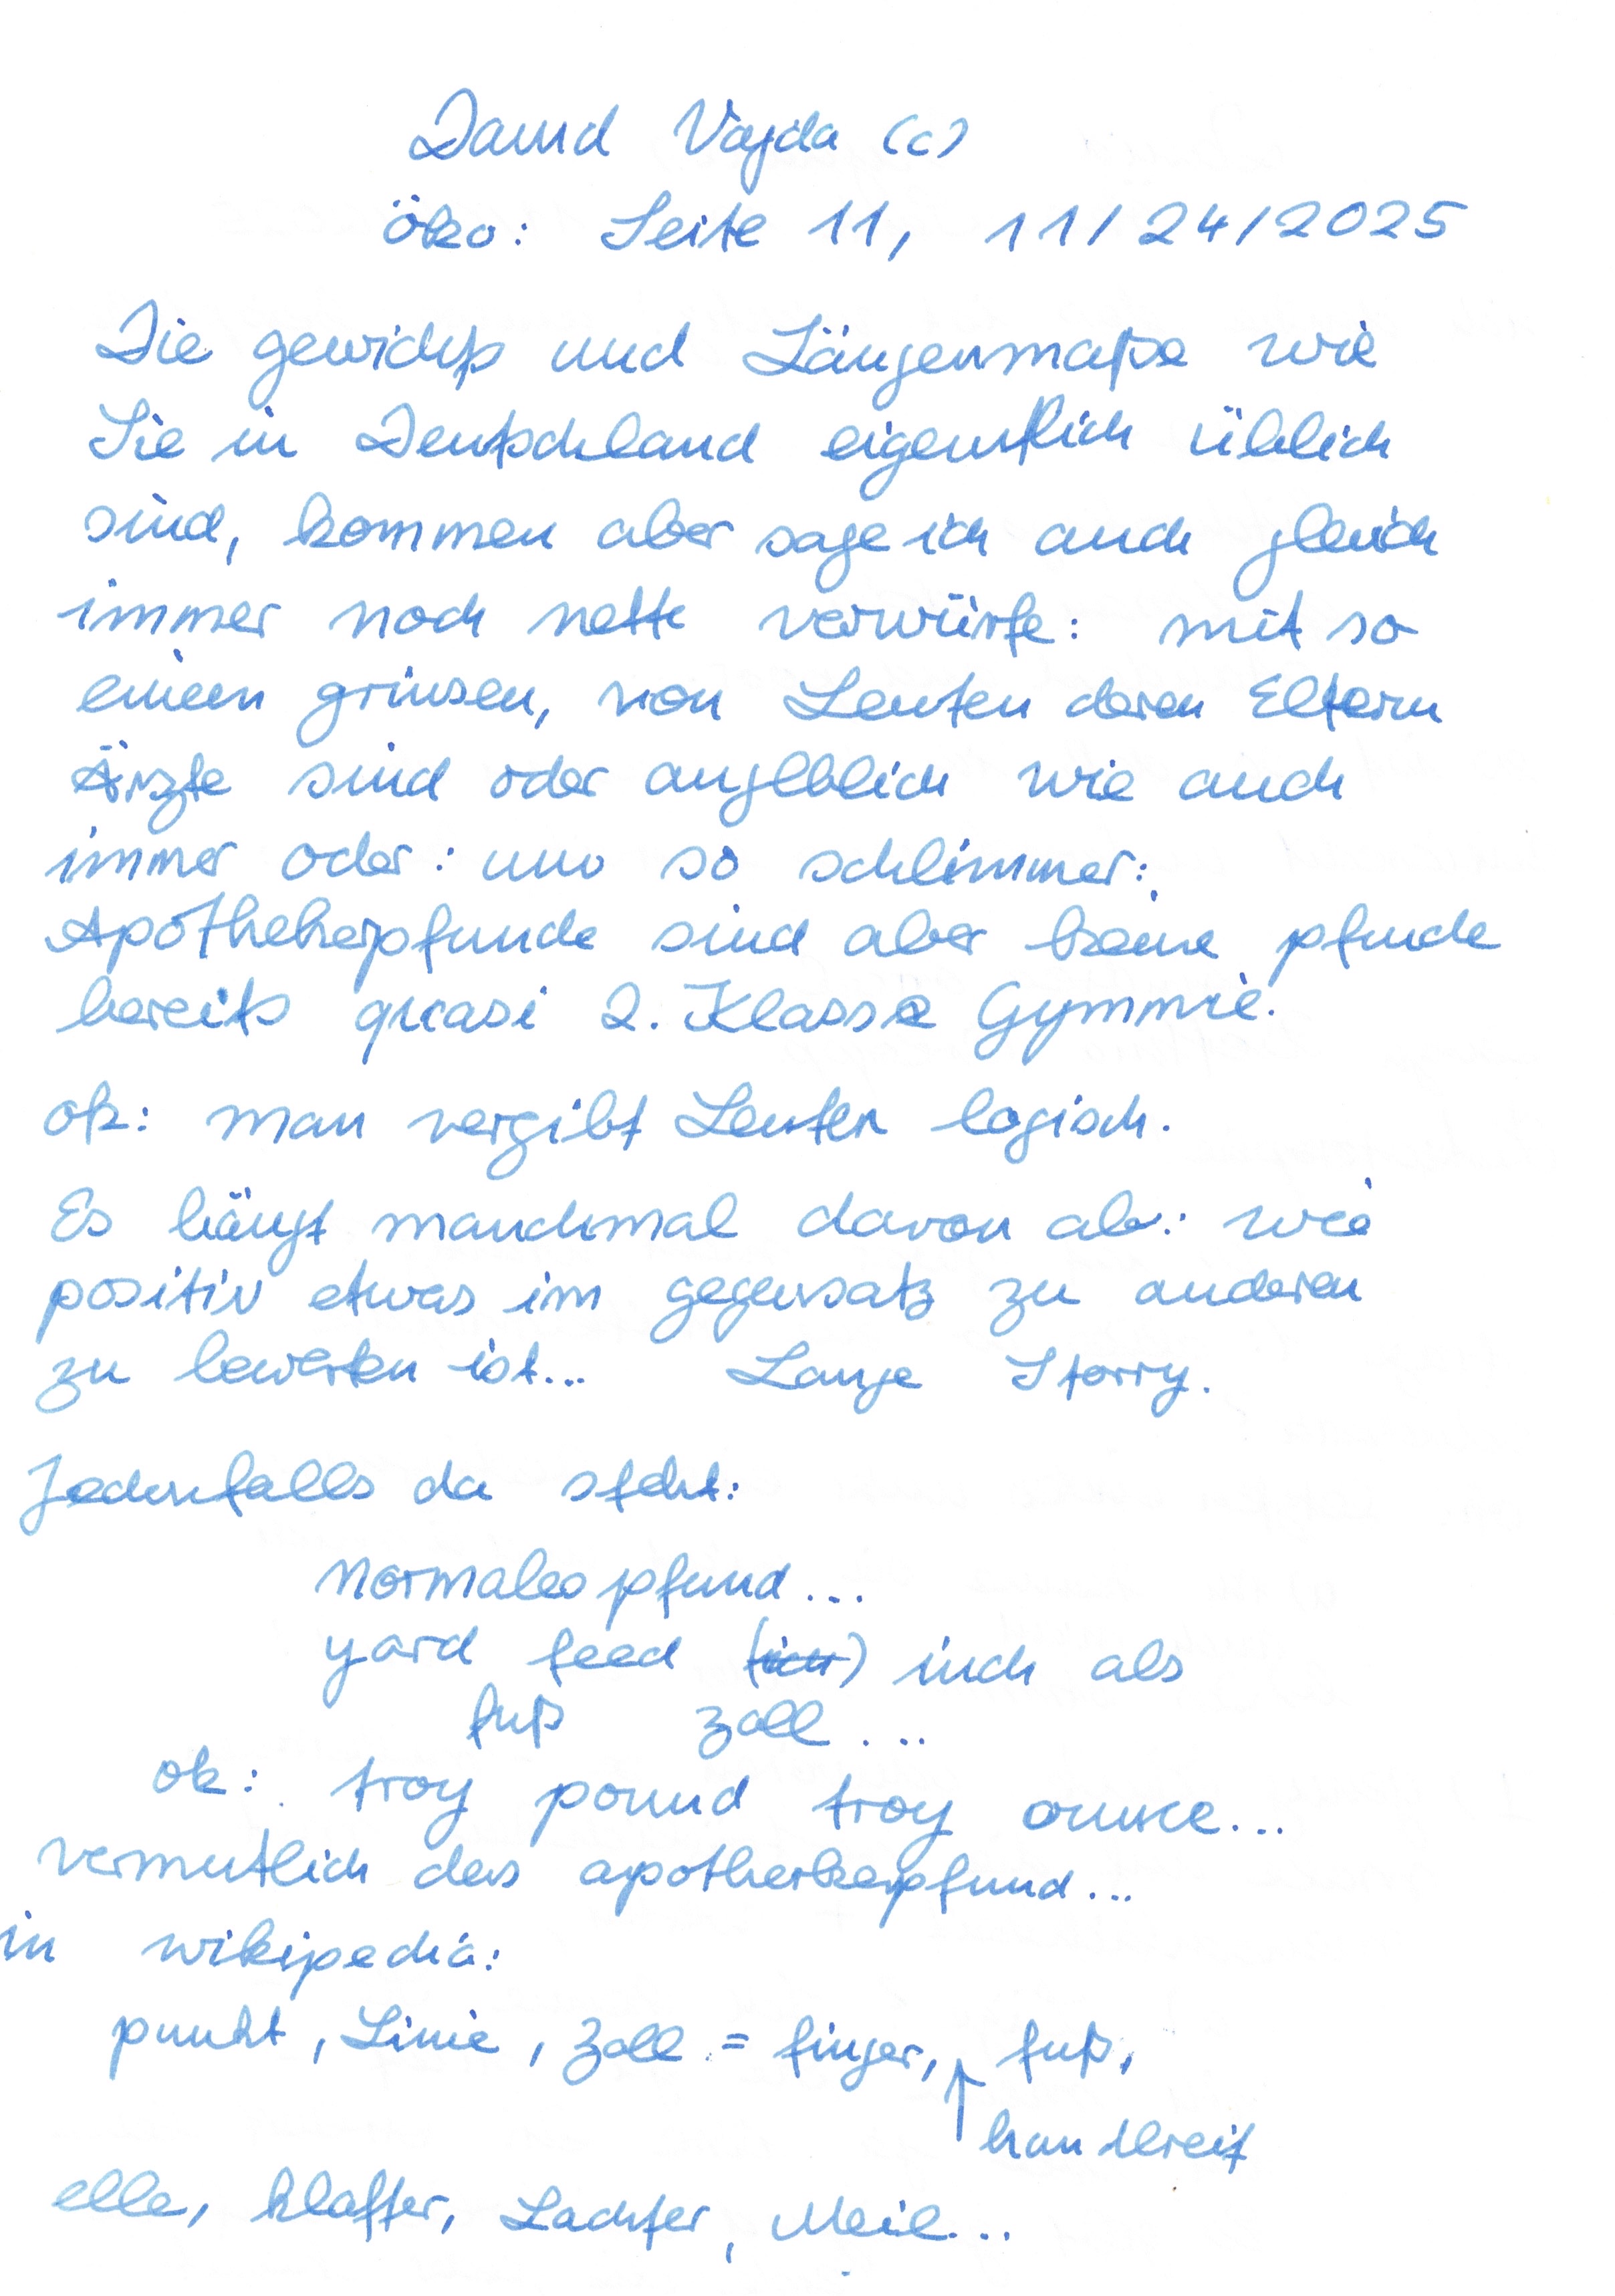 David Vajda (c)
öko: Seite 11, 11/24/2025
Die gewichts und Längenmaße wie
Sie in Deutschland eigentlich üblich
sind, kommen aber sage ich auch gleich
immer noch nette verwürfe: mit so
einem grinsen, von Leuten deren Eltern
Ärzte sind oder angeblich wie auch
immer oder: um so schlimmer:
Apothekerpfunde sind aber keine pfunde
bereits quasi 2. Klasse Gymmie.
ok: man vergibt Leuten logisch.
Es hängt manchmal davon ab: wie
positiv etwas im gegensatz zu anderen
zu bewerten ist... Lange Storry.
Jedenfalls da steht:
normales pfund...
yard feed (ich) inch als
fuß zoll ....
ok: troy pound troy ounce...
vermutlich das apotherkerpfund...
in wikipedia:
punkt, Linie, Zoll = finger, fuß,
handbreit
elle, klafter, Lachter, Meile...